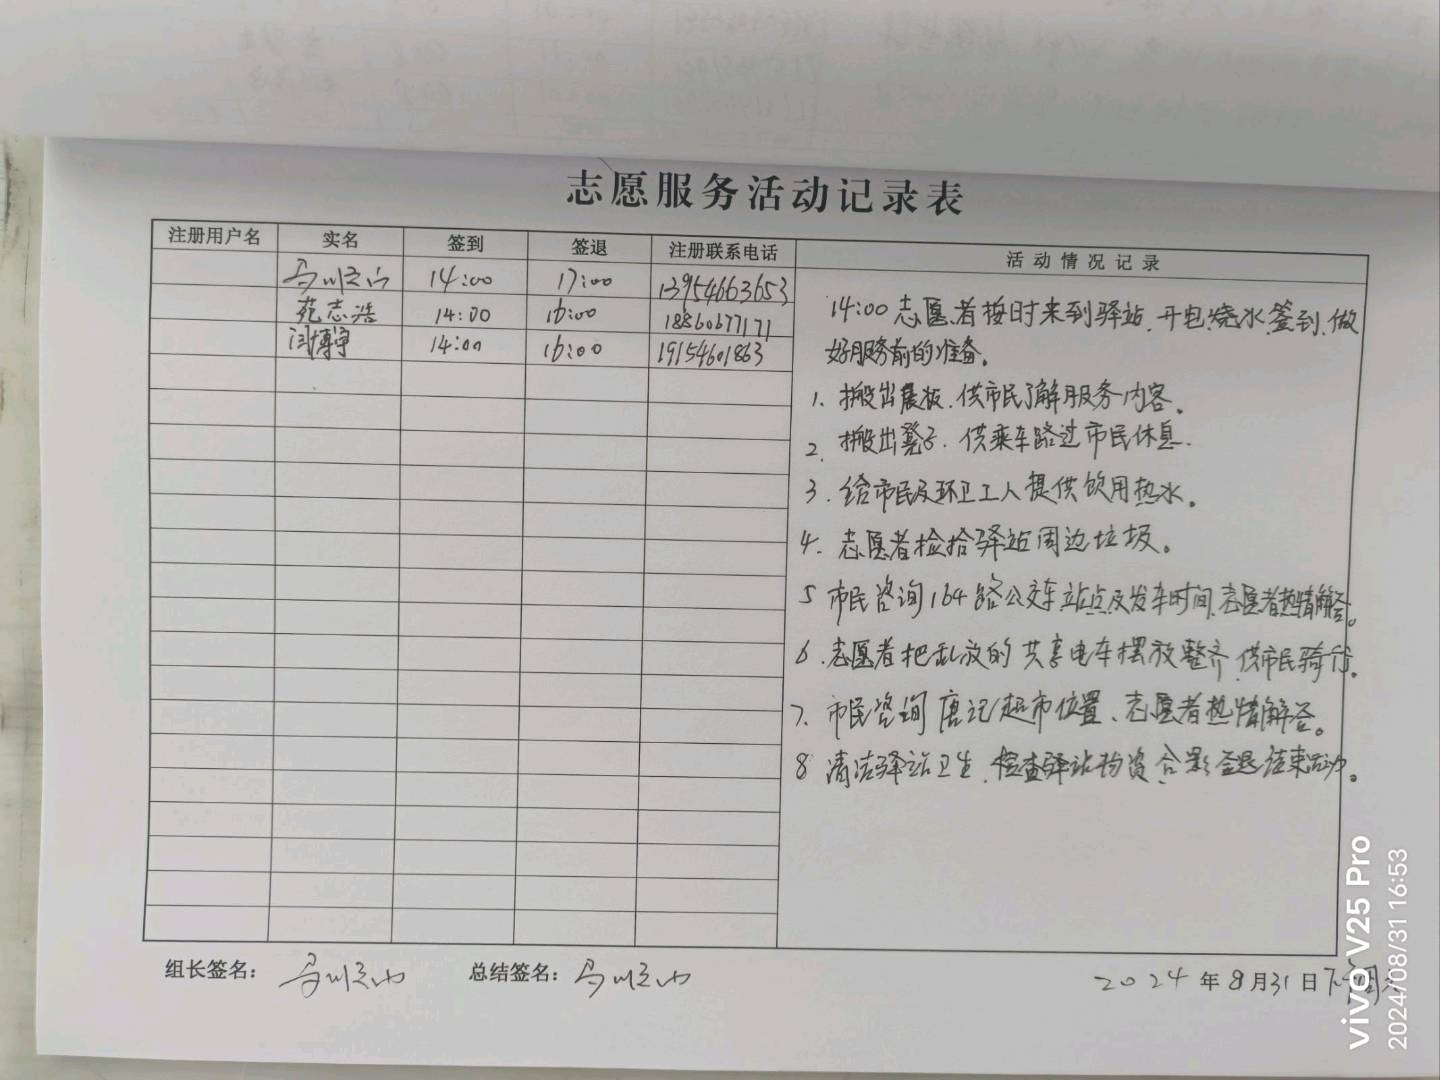 志愿服务活动记录表
注册用户名 实名 签到 签退 注册联系电话 活动情况记录
14:00 17:00 13954663653
苑志浩 14:00 16:00 18860677171
闫博宇 14:00 16:00 19154601863
14:00志愿者按时来到驿站、开电、烧水、签到、做
好服务前的准备。
1、搬出展板、供市民了解服务内容。
2、搬出凳子、供乘车路过市民休息.
3.给市民及环卫工人提供饮用热水。
4.志愿者检拾驿站周边垃圾。
5 市民咨询164路公交车站点及发车时间、志愿者热情解答。
6.志愿者把乱放的共享电车摆放整齐、供市民骑行。
7.市民咨询唐记超市位置、志愿者热情解答。
8 清洁驿站卫生、检查驿站物资、合影签退结束活动。
组长签名： 总结签名： 2024年8月31日下午
vivo V25 Pro
2024/08/31 16:53